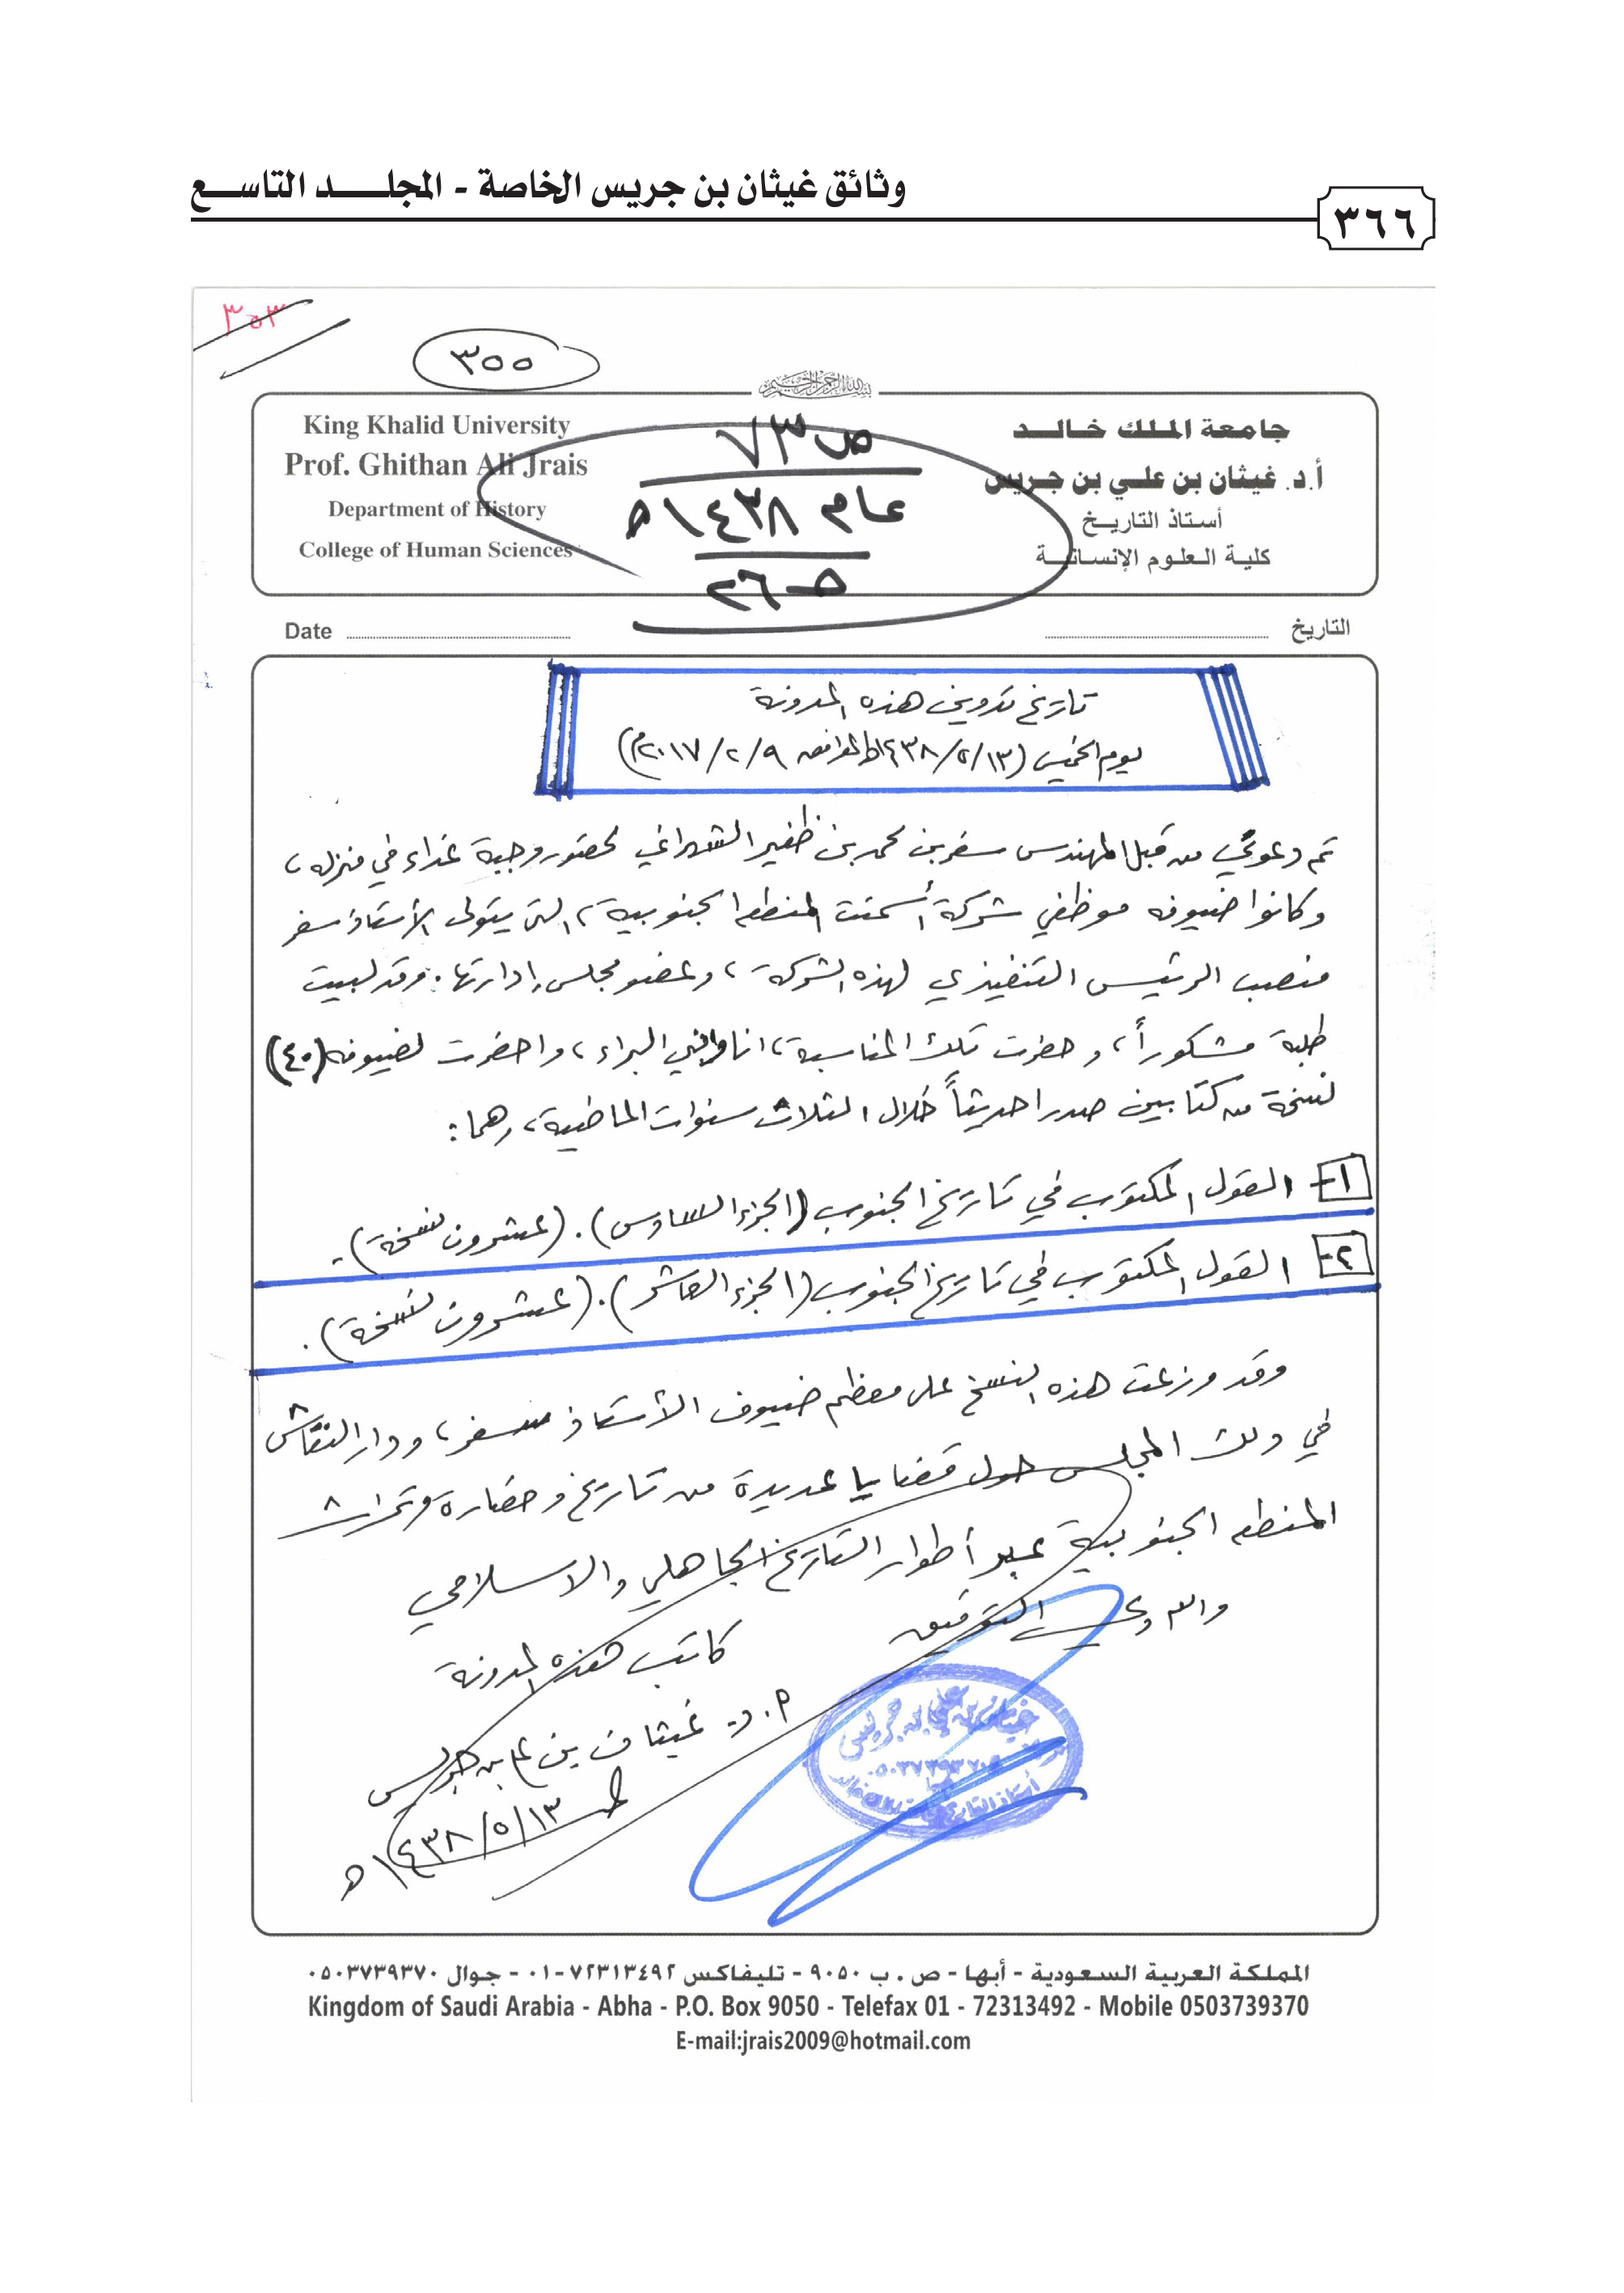 وثائق غيثان بن جريس الخاصة - المجلد التاسع
٣٦٦
٣٥٣
٣٥٥
بسم الله الرحمن الرحيم
King Khalid University
Prof. Ghithan Ali Jrais
Department of History
College of Human Sciences
ص٧٣
عام ١٤٣٨هـ
ص٢٦
جامعة الملك خالد
أ.د. غيثان بن علي بن جريس
أستاذ التاريخ
كلية العلوم الإنسانية
Date
التاريخ
تاريخ تدوين هذه المدونة
يوم الخميس (١٣/٥/١٤٣٨هـ الموافق ٩/٢/٢٠١٧م)
تم دعوتي من قبل المهندس سفر بن محمد بن ظفير الشهراني لحضور وجبة غداء في منزله،
وكانوا ضيوفه موظفي شركة أسمنت المنطقة الجنوبية، التي يتولى الأستاذ سفر
منصب الرئيس التنفيذي لهذه الشركة، وعضو مجلس إدارتها. وقد لبيت
طلبة مشكوراً، وحضرت تلك المناسبة، انا وابني البراء، واحضرت لضيوفه (٤٠)
نسخة من كتابين صدرا حديثاً خلال الثلاث سنوات الماضية، وهما:
١- القول المكتوب في تاريخ الجنوب (الجزء السادس). (عشرون نسخة).
٢- القول المكتوب في تاريخ الجنوب (الجزء العاشر). (عشرون نسخة).
وقد وزعت هذه النسخ على معظم ضيوف الأستاذ سفر، ودار النقاش
في ذلك المجلس حول قضايا عديدة من تاريخ وحضارة وتراث
المنطقة الجنوبية عبر أطوار التاريخ الجاهلي والاسلامي
والله ولي التوفيق
كاتب هذه المدونة
أ.د. غيثان بن علي بن جريس
١٣/٥/١٤٣٨هـ
غيثان بن علي بن جريس
المملكة العربية السعودية - أبها - ص . ب ٩٠٥٠ - تليفاكس ٧٢٣١٣٤٩٢-٠١ - جوال ٠٥٠٣٧٣٩٣٧٠
Kingdom of Saudi Arabia - Abha - P.O. Box 9050 - Telefax 01 - 72313492 - Mobile 0503739370
E-mail:jrais2009@hotmail.com